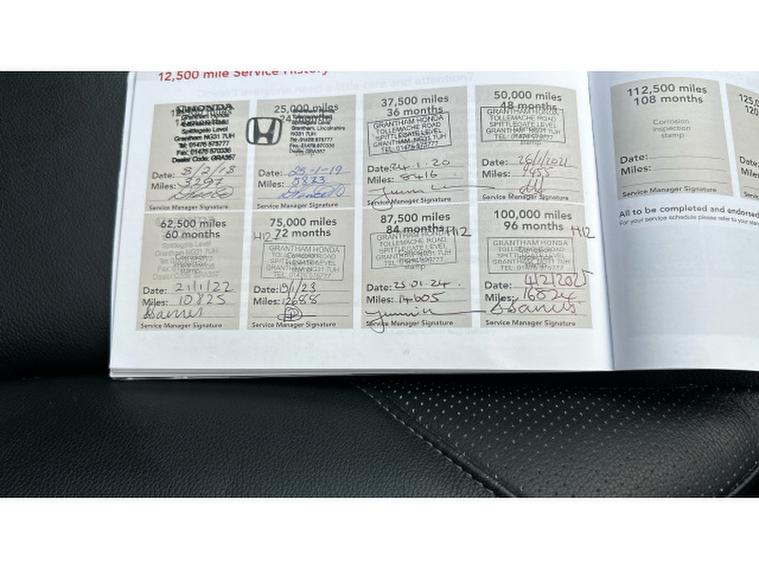 12,500 mile Service History
HONDA
Spittlegate Level
Grantham NG31 7UH
Tel: 01476 575777
Fax: 01476 570036
Dealer Code: GRA367
Date: 8/2/18
Miles: 3297
Service Manager Signature
25,000 miles
Grantham, Lincolnshire
NG31 7UH
Date: 25-1-19
Miles: 5833
Service Manager Signature
37,500 miles
36 months
GRANTHAM HONDA
TOLLEMACHE ROAD
SPITTLEGATE LEVEL
GRANTHAM NG31 7UH
TEL: 01476 575777
Date: 24.1.20
Miles: 8416
Service Manager Signature
50,000 miles
48 months
GRANTHAM HONDA
TOLLEMACHE ROAD
SPITTLEGATE LEVEL
GRANTHAM NG31 7UH
Date: 26/1/2021
Miles: 9455
Service Manager Signature
62,500 miles
60 months
Spittlegate Level
Grantham NG31 7UH
Date: 21/1/22
Miles: 10825
Service Manager Signature
75,000 miles
72 months
H12
GRANTHAM HONDA
TOLLEMACHE ROAD
SPITTLEGATE LEVEL
GRANTHAM NG31 7UH
Date: 19/1/23
Miles: 12688
Service Manager Signature
87,500 miles
84 months
H12
GRANTHAM HONDA
TOLLEMACHE ROAD
SPITTLEGATE LEVEL
GRANTHAM NG31 7UH
Date: 25.01.24.
Miles: 14605
Service Manager Signature
100,000 miles
96 months
H12
GRANTHAM HONDA
TOLLEMACHE ROAD
SPITTLEGATE LEVEL
GRANTHAM NG31 7UH
stamp
Date: 4/2/2025
Miles: 16824
Service Manager Signature
112,500 miles
108 months
Corrosion
inspection
stamp
Date:
Miles:
Service Manager Signature
Date:
Miles:
All to be completed and endorsed
For your service schedule please refer to your